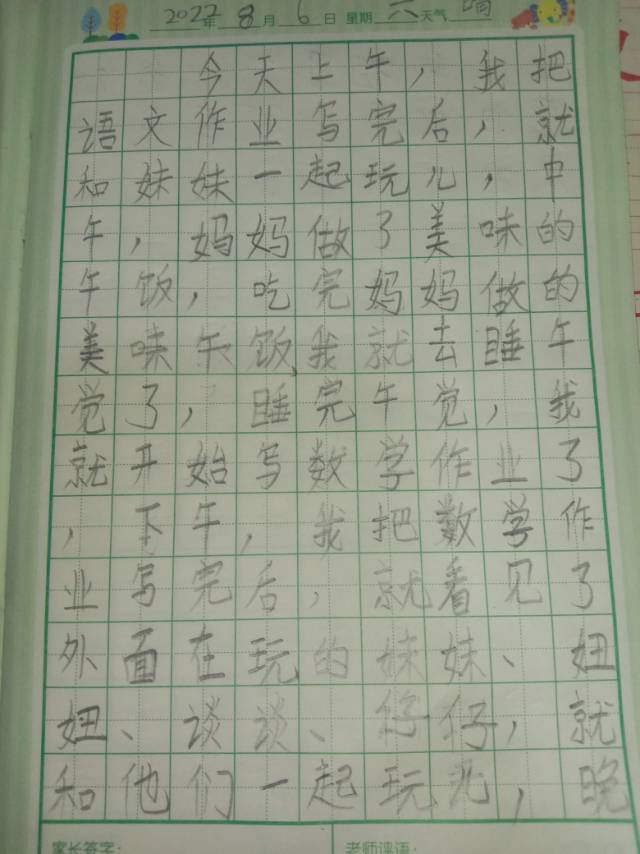 2022年8月6日 星期六天气晴
今天上午，我把
语文作业写完后，就
和妹妹一起玩儿，中
午，妈妈做了美味的
午饭，吃完妈妈做的
美味午饭、我就去睡午
觉了，睡完午觉，我
就开始写数学作业了
，下午，我把数学作
业写完后，就看见了
外面在玩的妹妹、妞
妞、谈谈、仔仔，就
和他们一起玩儿，晚
家长签字：
老师评语：